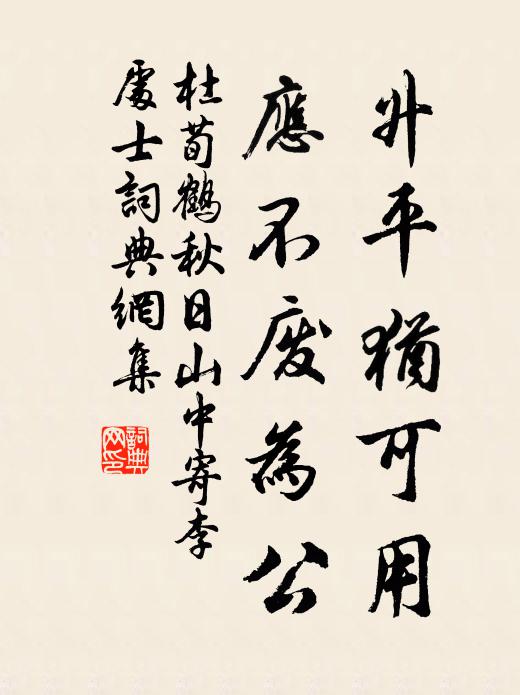 升平猶可用
應不廢為公
杜荀鶴秋日山中寄李
處士詞典網集
詞典
网印